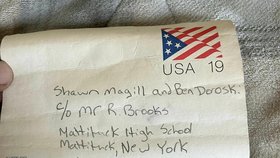 USA 19
Shawn Magill and Ben Doroski
c/o Mr R. Brooks
Mattituck High School
Mattituck, New York